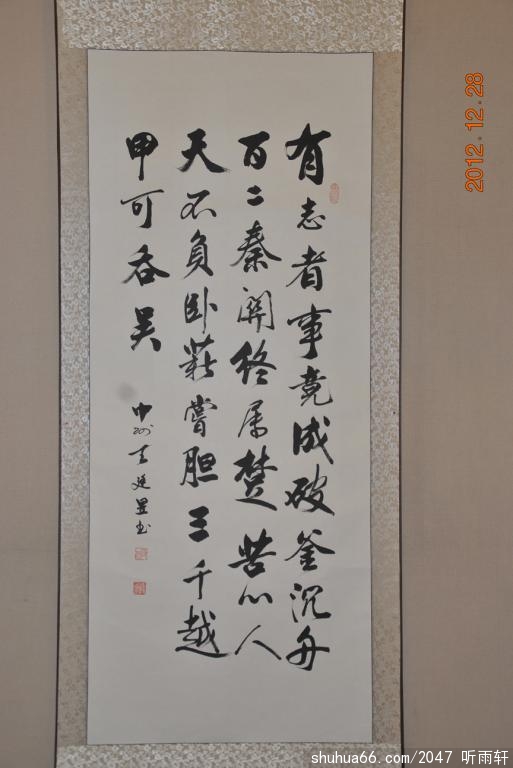 有志者事竟成破釜沉舟
百二秦關终属楚苦心人
天不負卧薪嘗胆三千越
甲可吞吴
中州 廷 书
2012.12.28
shuhua66.com/2047 听雨轩